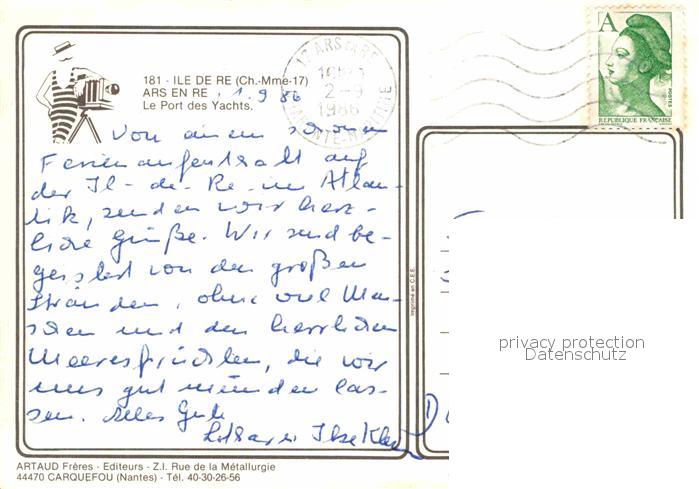 181 - ILE DE RE (Ch.-Mme-17)
ARS EN RE
Le Port des Yachts.
1.9.86
17 ARS EN RE
16H
2-9
1986
CHARENTE-MARITIME
A
POSTES
REPUBLIQUE FRANCAISE
Von einem schönen
Ferienaufenthalt auf
der Il-de-Re im Atlan-
tik, senden wir herz-
liche Grüße. Wir sind be-
geistert von den großen
Stränden, ohne viel Men-
schen und den herrlichen
Meeresfrüchten, die wir
uns gut munden las-
sen. Alles Gute
Lothar u Ilse
Imprimé en C.E.E.
privacy protection
Datenschutz
ARTAUD Frères - Editeurs - Z.I. Rue de la Métallurgie
44470 CARQUEFOU (Nantes) - Tél. 40-30-26-56